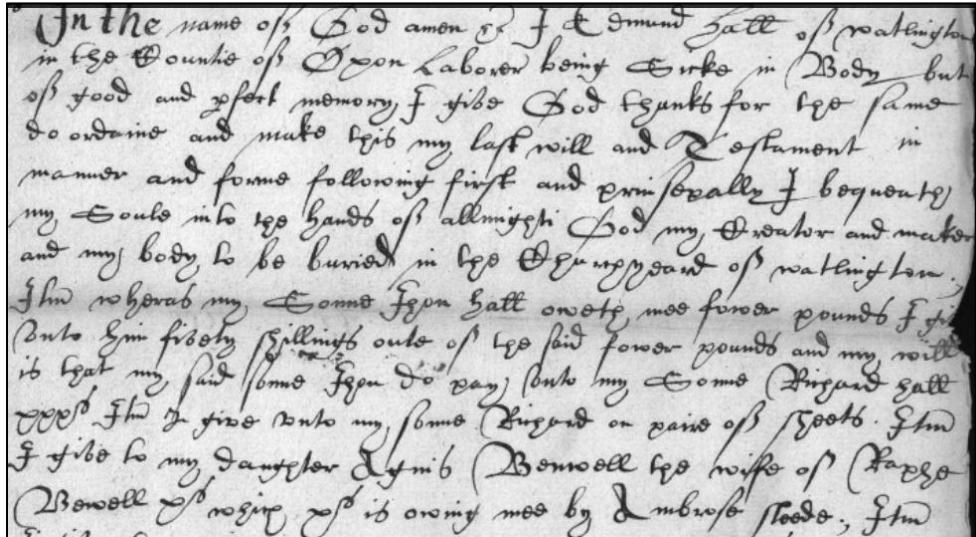 In the name off God amen &c I Edmund hall off watlington
in the Countie off Oxon Laborer being Sicke in Body but
off good and pfect memory I give God thanks for the same
do ordaine and make this my last will and Testament in
manner and forme following first and prinsepally I bequeath
my Soule into the hands off allmighti God my Creator and maker
and my body to be buried in the Churchyeard off watlington.
Itm wheras my Sonne Jhon hall oweth mee fower pounds I
vnto him shillings oute of the said fower pounds and my will
is that my said sonne Jhon do pay vnto my Sonne Richard hall
xxxs Itm I give vnto my sonne Richard on paire off sheets. Itm
I give to my daughter Agnis Benwell the wiffe off Raphe
Bewell xs which xs is owing mee by Ambrose sleede., Itm